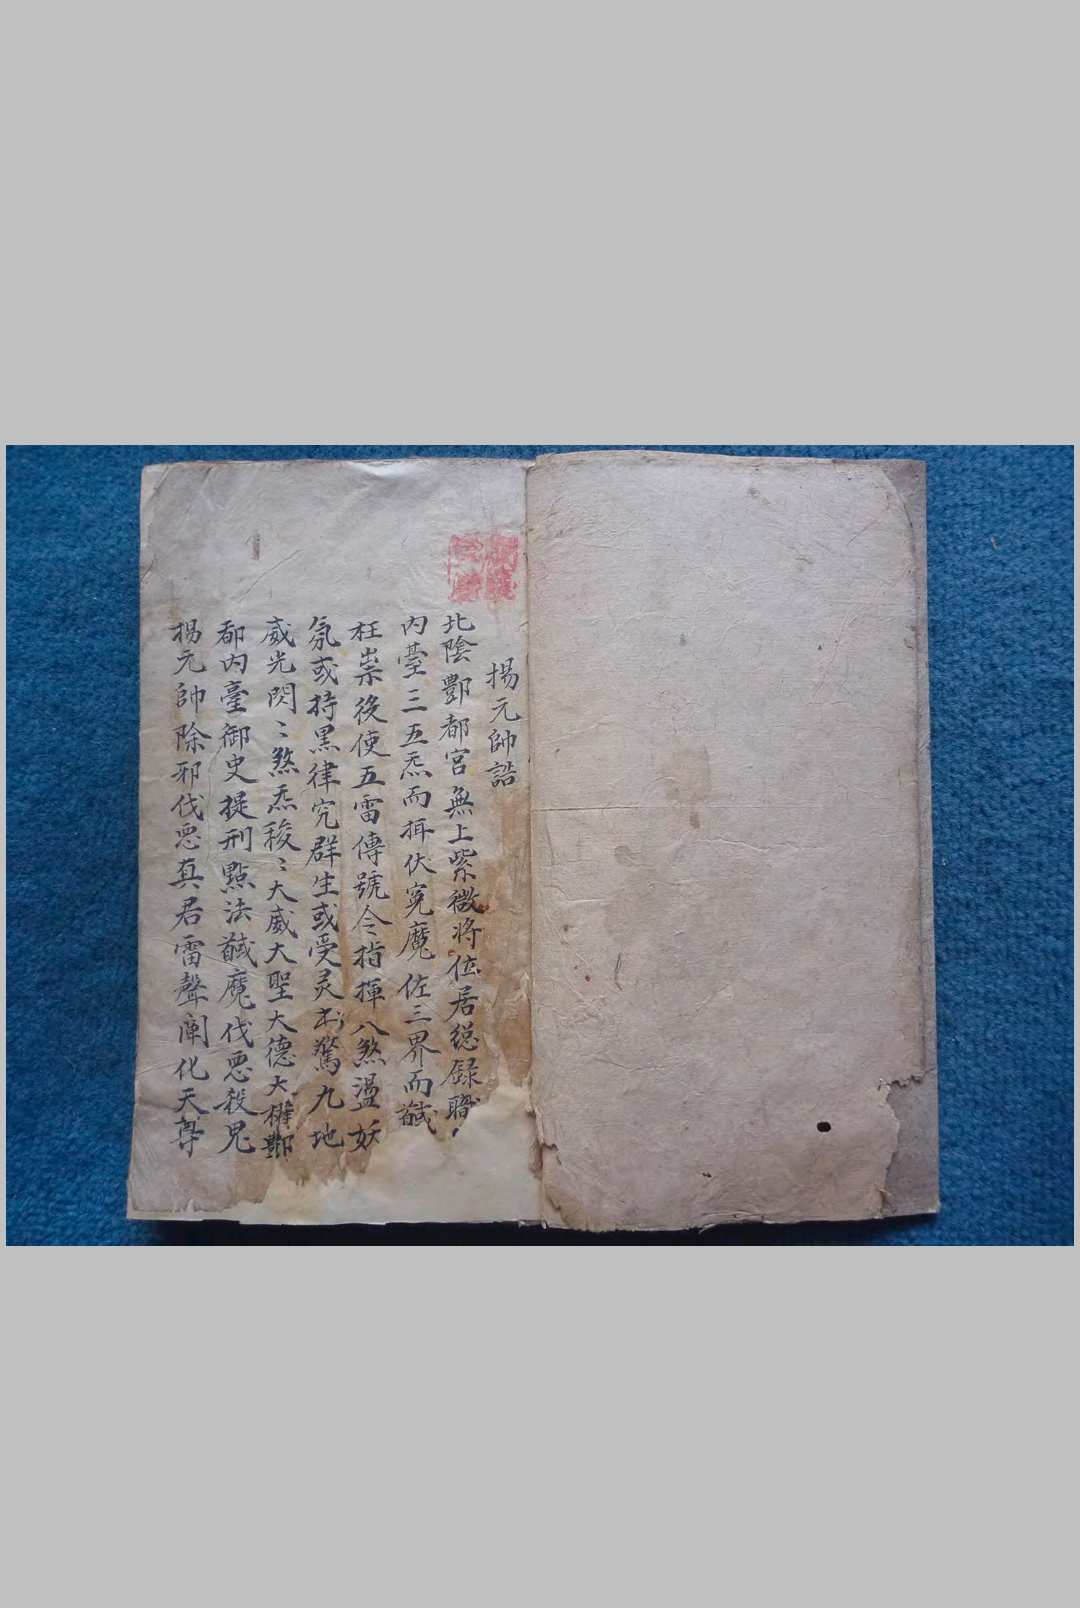 揚元帥誥
北陰酆都宮無上紫微將位居總録職
内臺三五炁而揖伏寃魔佐三界而馘
枉祟後使五雷傳號令指揮八煞盪妖
氛或持黑律究群生或受灵書驚九地
威光閃〻煞炁稜〻大威大聖大德大權酆
都内臺御史提刑點法馘魔伐惡殺鬼
揚元帥除邪伐惡真君雷聲闡化天尊